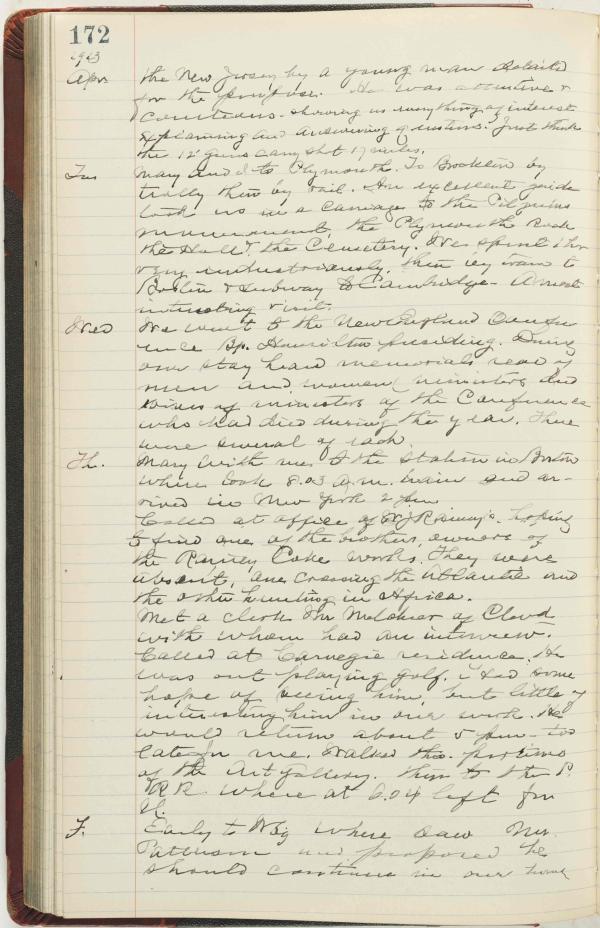 172
1913
Apr. the New Jersey by a young man detailed
for the purpose. He was attentive &
courteous - showing us everything of interest
explaining and answering questions. Just think
the 12" guns carry shot 17 miles.
Tues Mary and I to Plymouth. To Brockton by
trolly then by rail. An excellent guide
took us in a carriage to the Pilgrims
monument, the Plymouth Rock
the Hall & the Cemetery. We spent 1 hr
very industriously. Then by train to
Boston & subway to Cambridge - A most
interesting visit.
Wed We went to the New England Confer
ence Bp. Hamilton presiding. During
our stay heard memorials read of
men and women, ministers and
wives of ministers of the Conference
who had died during the year. There
were several of each.
Th. Mary with me to the station in Boston
where took 8.03 a.m. train and ar-
rived in New York 2 pm
Called at office of W J Rainey's hoping
to find one of the brothers, owners of
the Rainey Coke works. They were
absent, one crossing the Atlantic and
the other hunting in Africa.
Met a clerk Mr Melchior of Clevd
with whom had an interview.
Called at Carnegie residence. He
was out playing golf. I had some
hope of seeing him, but little of
interesting him in our work. He
would return about 5 pm - too
late for me. Walked thro. portions
of the Art Gallery. Then to the P.
RR where at 6.04 left for
U.
F. Early to where saw Mr.
Patterson and proposed he
should continue in our home